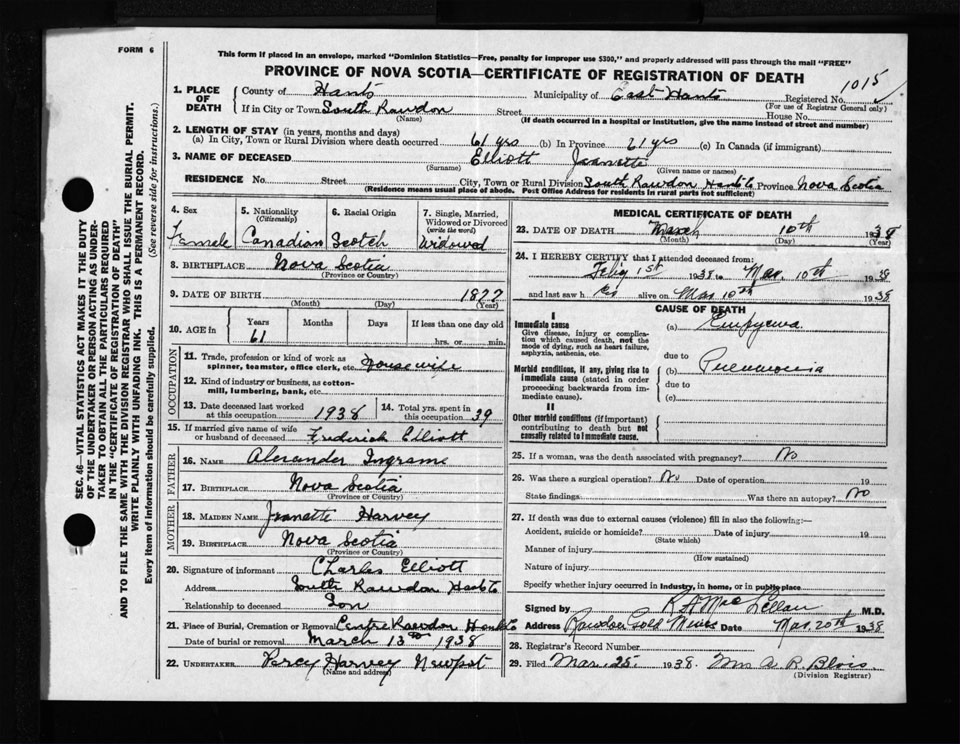 FORM 6
This form if placed in an envelope, marked "Dominion Statistics—Free, penalty for improper use $300," and properly addressed will pass through the mail "FREE"
PROVINCE OF NOVA SCOTIA—CERTIFICATE OF REGISTRATION OF DEATH
1015
SEC. 46—VITAL STATISTICS ACT MAKES IT THE DUTY
OF THE UNDERTAKER OR PERSON ACTING AS UNDER-
TAKER TO OBTAIN ALL THE PARTICULARS REQUIRED
IN THE "CERTIFICATE OF REGISTRATION OF DEATH"
AND TO FILE THE SAME WITH THE DIVISION REGISTRAR WHO SHALL ISSUE THE BURIAL PERMIT.
WRITE PLAINLY WITH UNFADING INK. THIS IS A PERMANENT RECORD.
Every item of information should be carefully supplied. (See reverse side for instructions.)
1. PLACE OF DEATH
County of Hants Municipality of East Hants Registered No.
(For use of Registrar General only)
If in City or Town South Rawdon Street House No.
(Name) (If death occurred in a hospital or institution, give the name instead of street and number)
2. LENGTH OF STAY (in years, months and days)
(a) In City, Town or Rural Division where death occurred 61 yrs (b) In Province 61 yrs (c) In Canada (if immigrant)
3. NAME OF DECEASED Elliott Jeanette
(Surname) (Given name or names)
RESIDENCE No. Street City, Town or Rural Division South Rawdon Hants Co Province Nova Scotia
(Residence means usual place of abode. Post Office Address for residents in rural parts not sufficient)
4. Sex
Female
5. Nationality
(Citizenship)
Canadian
6. Racial Origin
Scotch
7. Single, Married,
Widowed or Divorced
(write the word)
Widowed
8. BIRTHPLACE Nova Scotia
(Province or Country)
9. DATE OF BIRTH 1877
(Month) (Day) (Year)
10. AGE in
Years Months Days If less than one day old
61 hrs. or min.
OCCUPATION
11. Trade, profession or kind of work as
spinner, teamster, office clerk, etc. Housewife
12. Kind of industry or business, as cotton-
mill, lumbering, bank, etc.
13. Date deceased last worked
at this occupation 1938
14. Total yrs. spent in
this occupation 39
15. If married give name of wife
or husband of deceased Frederick Elliott
FATHER
16. NAME Alexander Ingrams
17. BIRTHPLACE Nova Scotia
(Province or Country)
MOTHER
18. MAIDEN NAME Jeanette Harvey
19. BIRTHPLACE Nova Scotia
(Province or Country)
20. Signature of informant Charles Elliott
Address South Rawdon Hants Co
Relationship to deceased Son
21. Place of Burial, Cremation or Removal Centre Rawdon Hants Co
Date of burial or removal March 13th 1938
22. UNDERTAKER Percy Harvey Newport
(Name and address)
MEDICAL CERTIFICATE OF DEATH
23. DATE OF DEATH March 10th 1938
(Month) (Day) (Year)
24. I HEREBY CERTIFY that I attended deceased from:
1st 1938 to Mar. 10th 1938
and last saw her alive on Mar 10th 1938
CAUSE OF DEATH
I
Immediate cause
Give disease, injury or complica-
tion which caused death, not the
mode of dying, such as heart failure,
asphyxia, asthenia, etc.
(a) Empyema
due to
Morbid conditions, if any, giving rise to
immediate cause (stated in order
proceeding backwards from im-
mediate cause).
(b) Pneumonia
due to
(c)
II
Other morbid conditions (if important)
contributing to death but not
causally related to immediate cause.
25. If a woman, was the death associated with pregnancy? No
26. Was there a surgical operation? No Date of operation 19
State findings Was there an autopsy? No
27. If death was due to external causes (violence) fill in also the following:—
Accident, suicide or homicide? Date of injury 19
(State which)
Manner of injury
(How sustained)
Nature of injury
Specify whether injury occurred in Industry, in home, or in public place
Signed by R A MacLellan M.D.
Address Rawdon Gold Mines Date Mar. 20th 1938
28. Registrar's Record Number
29. Filed Mar. 25. 1938. Mrs A. R. Blois
(Division Registrar)